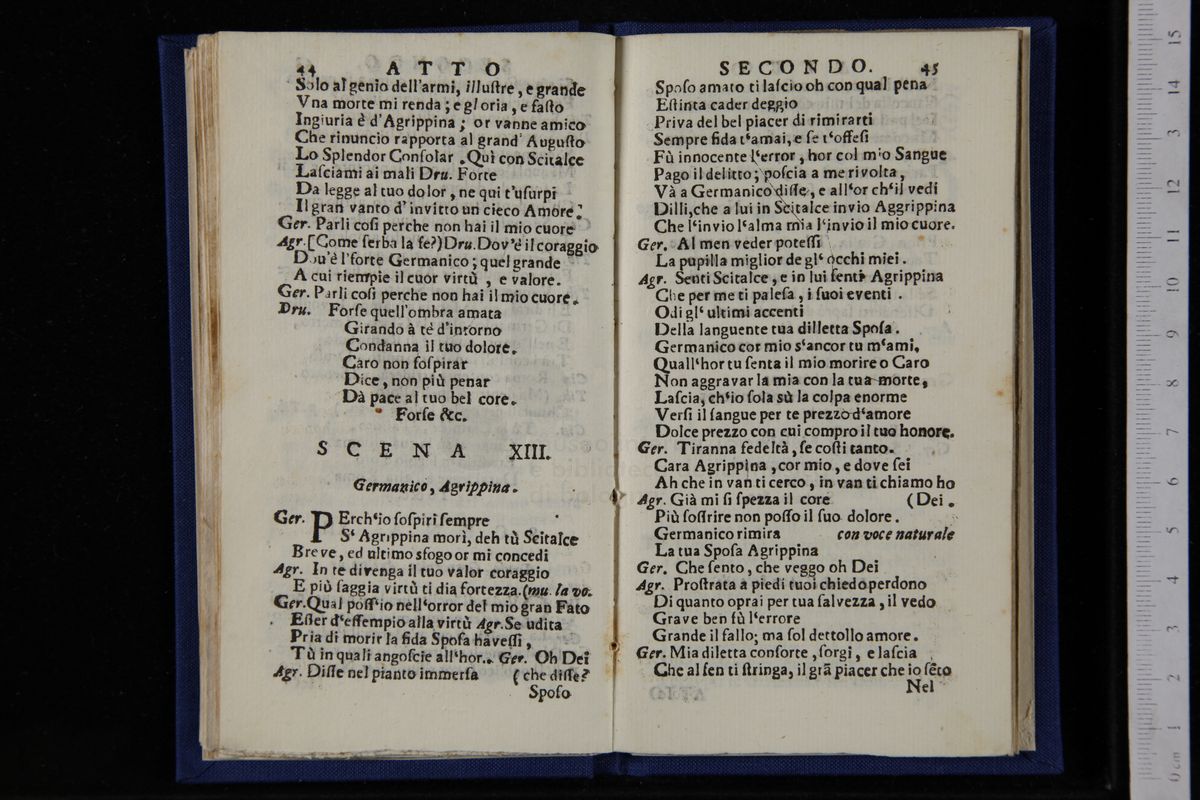 44 ATTO
Solo al genio dell'armi, illuſtre, e grande
Vna morte mi renda; e gloria, e faſto
Ingiuria è d'Agrippina; or vanne amico
Che rinuncio rapporta al grand' Auguſto
Lo Splendor Conſolar. Quì con Scitalce
Laſciami ai mali Dru. Forte
Da legge al tuo dolor, ne qui t'uſurpi
Il gran vanto d'invitto un cieco Amore!
Ger. Parli coſi perche non hai il mio cuore
Agr. [Come ſerba la fe?) Dru. Dov'è il coraggio
Dou'è l'forte Germanico; quel grande
A cui riempie il cuor virtù, e valore.
Ger. Parli coſi perche non hai il mio cuore.
Dru. Forſe quell'ombra amata
Girando à te d'intorno
Condanna il tuo dolore.
Caro non ſoſpirar
Dice, non più penar
Dà pace al tuo bel core.
Forſe &c.
SCENA XIII.
Germanico, Agrippina.
Ger. PErch‘io ſoſpiri ſempre
S‘ Agrippina morì, deh tù Scitalce
Breve, ed ultimo sfogo or mi concedi
Agr. In te divenga il tuo valor coraggio
E più ſaggia virtù ti dia fortezza. (mu. la vo.
Ger. Qual poſſ‘io nell‘orror del mio gran Fato
Eſſer d‘eſſempio alla virtù Agr. Se udita
Pria di morir la fida Spoſa haveſſi,
Tù in quali angoſcie all‘hor.. Ger. Oh Dei
Agr. Diſſe nel pianto immerſa (che diſſe?
Spoſo
SECONDO. 45
Spoſo amato ti laſcio oh con qual pena
Eſtinta cader deggio
Priva del bel piacer di rimirarti
Sempre fida t‘amai, e ſe t‘offeſi
Fù innocente l‘error, hor col mio Sangue
Pago il delitto; poſcia a me rivolta,
Và a Germanico diſſe, e all‘or ch‘il vedi
Dilli, che a lui in Scitalce invio Aggrippina
Che l‘invio l‘alma mia l‘invio il mio cuore.
Ger. Al men veder poteſſi
La pupilla miglior de gl‘ occhi miei.
Agr. Senti Scitalce, e in lui ſenti Agrippina
Che per me ti paleſa, i ſuoi eventi.
Odi gl‘ ultimi accenti
Della languente tua dilletta Spoſa.
Germanico cor mio s‘ancor tu m‘ami,
Quall‘hor tu ſenta il mio morire o Caro
Non aggravar la mia con la tua morte,
Laſcia, ch‘io ſola sù la colpa enorme
Verſi il ſangue per te prezzo d‘amore
Dolce prezzo con cui compro il tuo honore.
Ger. Tiranna fedeltà, ſe coſti tanto.
Cara Agrippina, cor mio, e dove ſei
Ah che in van ti cerco, in van ti chiamo ho
Agr. Già mi ſi ſpezza il core (Dei.
Più ſoffrire non poſſo il ſuo dolore.
Germanico rimira con voce naturale
La tua Spoſa Agrippina
Ger. Che ſento, che veggo oh Dei
Agr. Proſtrata a piedi tuoi chiedo perdono
Di quanto oprai per tua ſalvezza, il vedo
Grave ben fù l‘errore
Grande il fallo; ma ſol dettollo amore.
Ger. Mia diletta conſorte, ſorgi, e laſcia
Che al ſen ti ſtringa, il grã piacer che io ſẽto
Nel